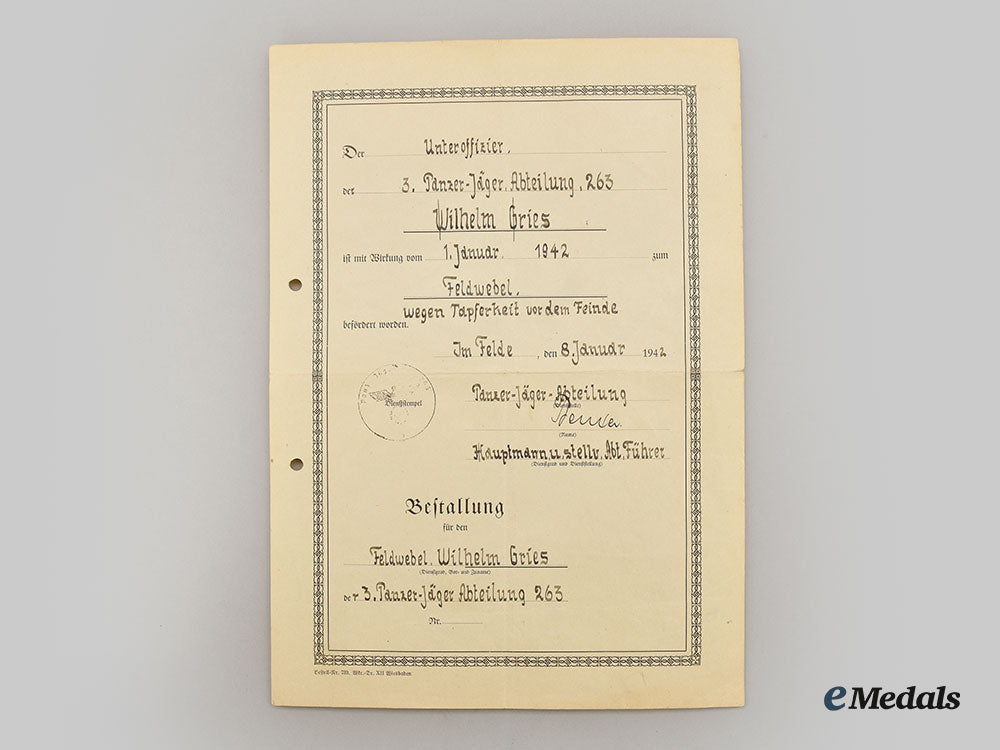 Der Unteroffizier,
der 3. Panzer-Jäger, Abteilung, 263
Wilhelm Gries
ist mit Wirkung vom 1. Januar 1942 zum
Feldwebel,
wegen Tapferkeit vor dem Feinde
befördert worden.
Im Felde, den 8. Januar 1942
Dienststempel
Panzer-Jäger-Abteilung
(Name)
Hauptmann, u. stellv. Abt. Führer
(Dienstgrad und Dienststellung)
Bestallung
für den
Feldwebel, Wilhelm Gries
(Dienstgrad, Vor- und Zuname)
der 3. Panzer-Jäger Abteilung 263
Nr.
Wiesbaden
eMedals